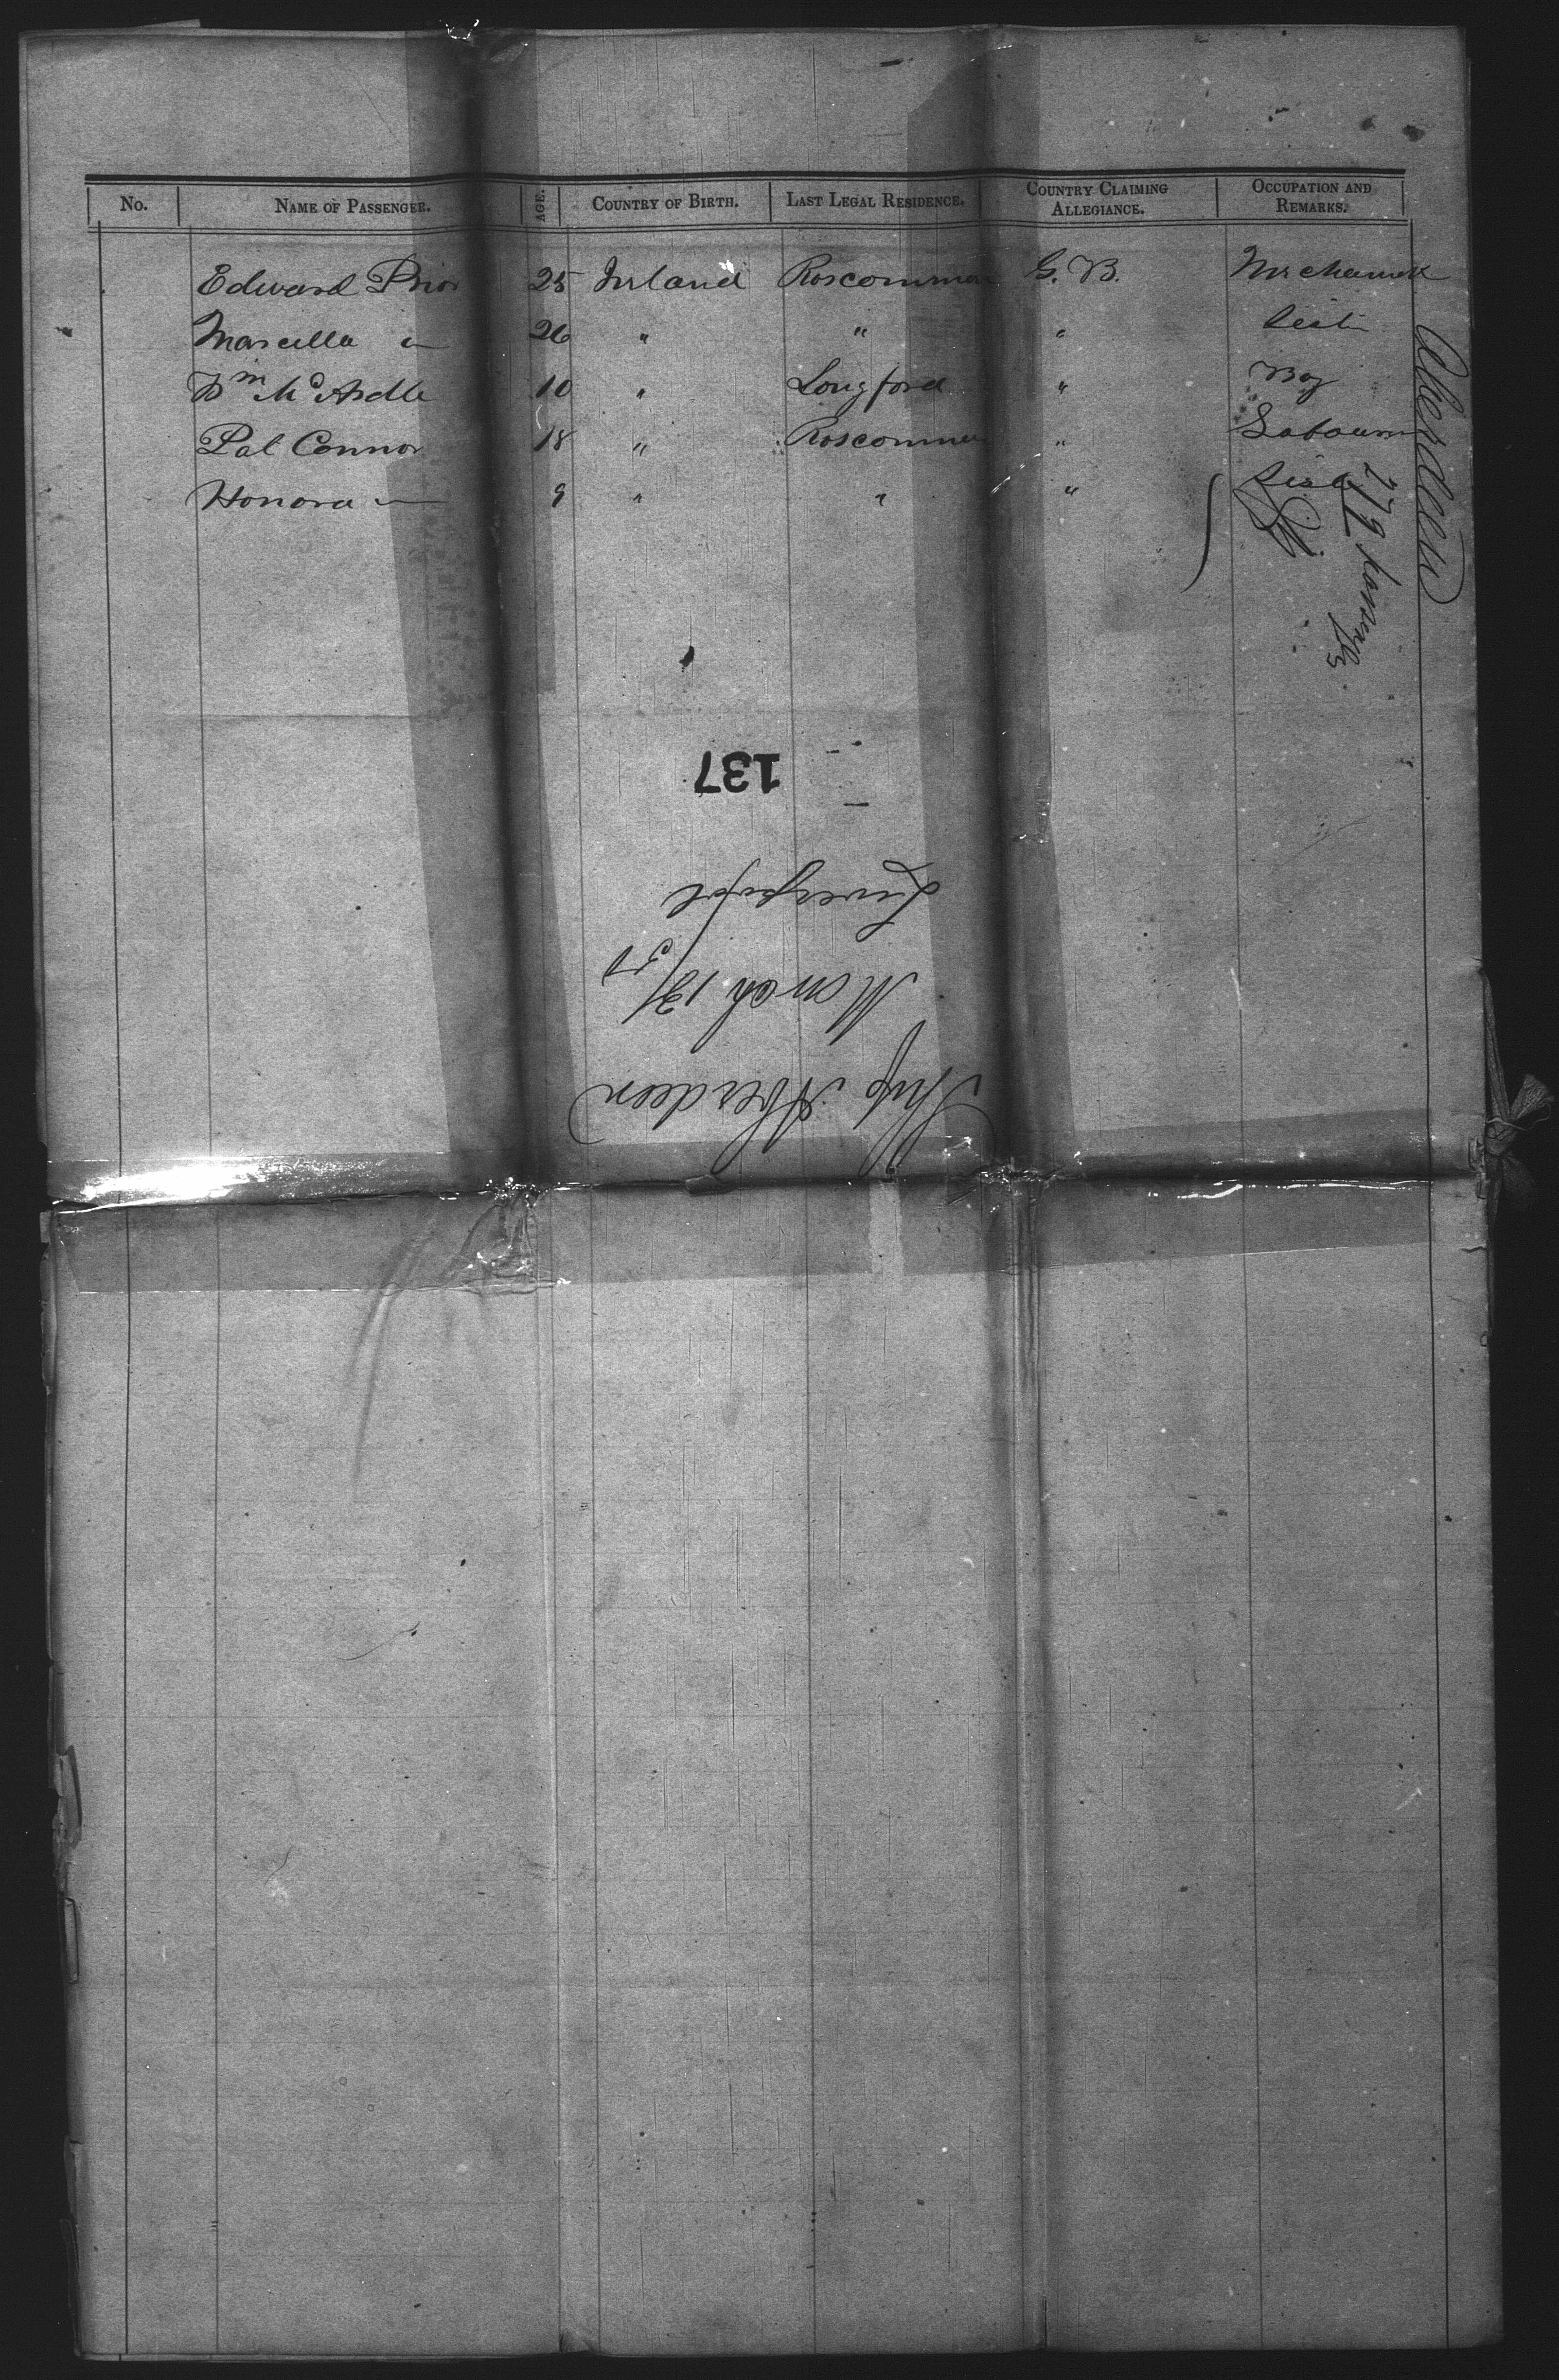 No. NAME OF PASSENGER. AGE. COUNTRY OF BIRTH. LAST LEGAL RESIDENCE. COUNTRY CLAIMING ALLEGIANCE. OCCUPATION AND REMARKS.
Edward Prior 25 Ireland Roscommon G. B. Mechanick
Marcella " 26 " " "
Wm McArdle 10 " Longford " Boy
Pat Connor 18 " Roscommon " Labourer
Honora " 9 " " "
Aberdeen
272 Passengers
Ship Aberdeen
March 13/50
Liverpool
137